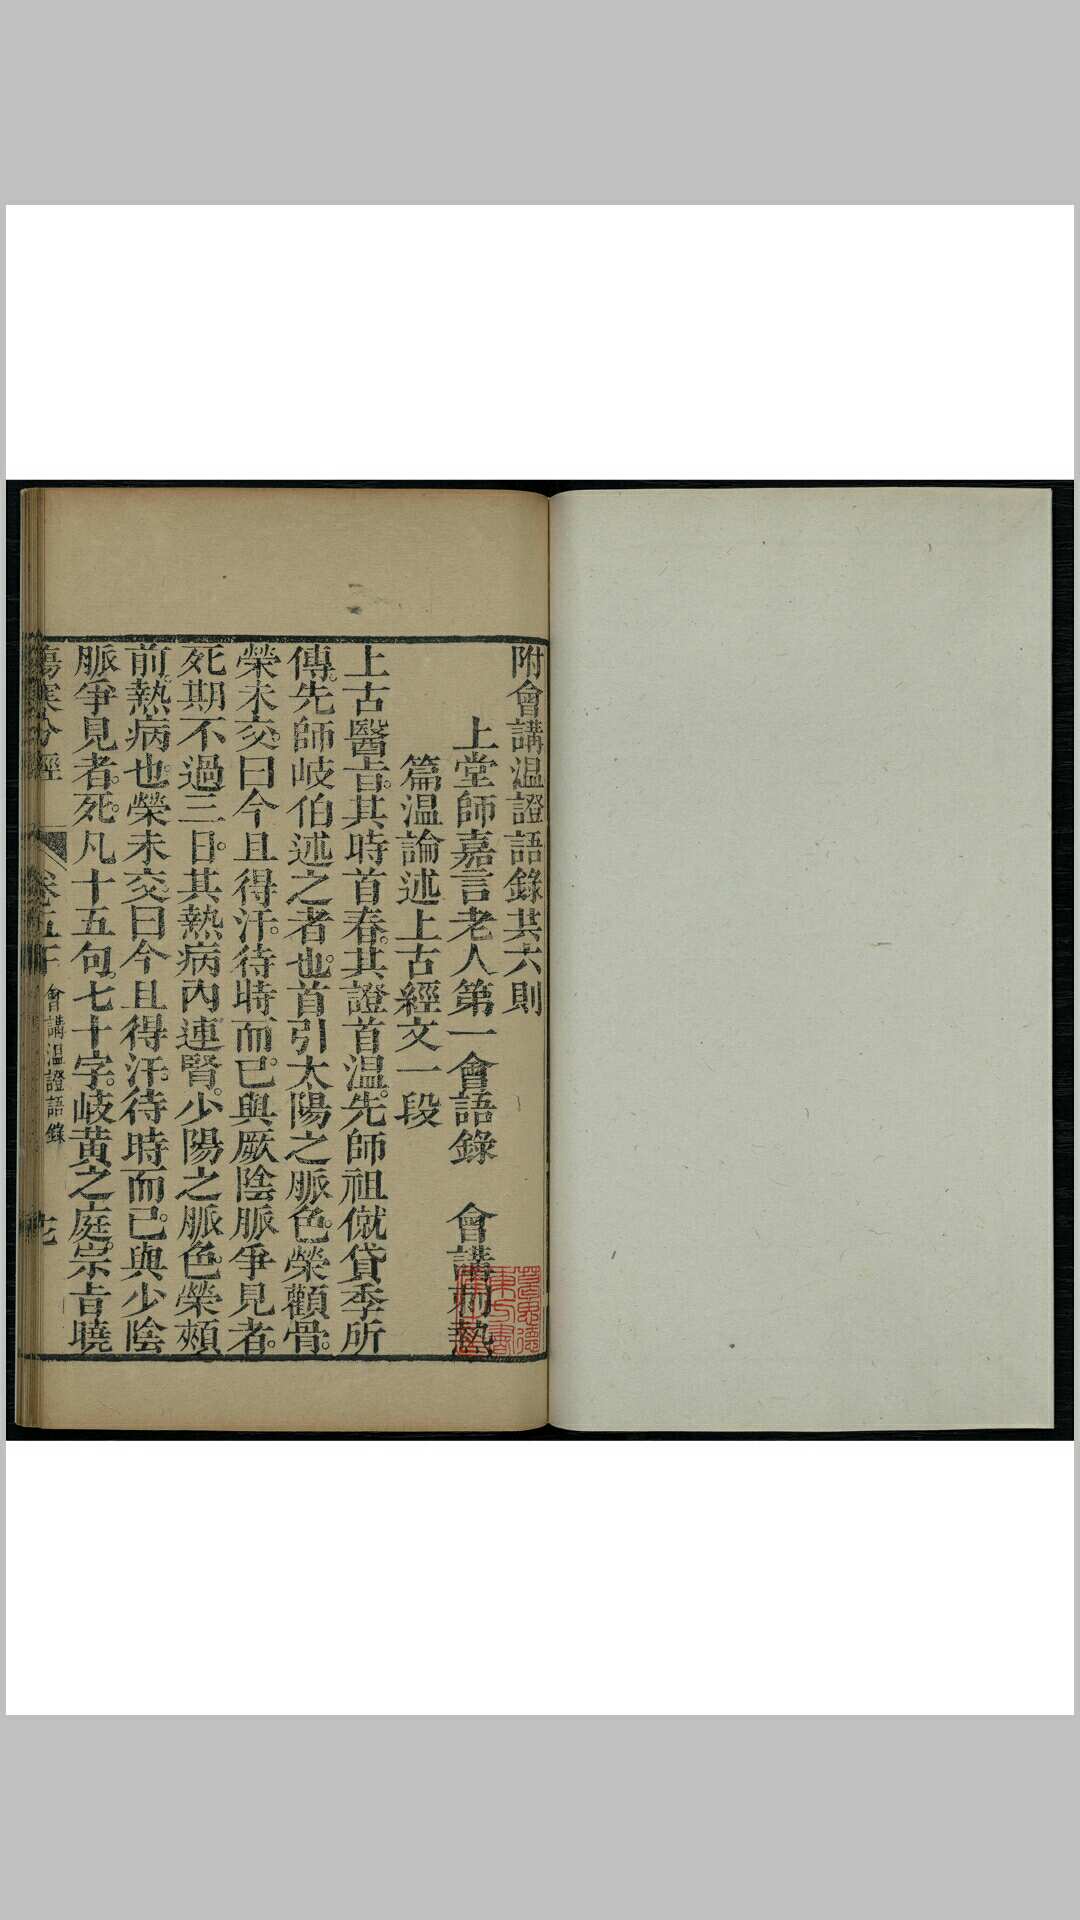 附會講温證語錄共六則
上堂師嘉言老人第一會語錄　會講刺熱
篇温論述上古經文一段
上古醫旨。其時首春。其證首温。先師祖僦貸季所
傳。先師岐伯述之者也。首引太陽之脈色。榮顴骨。
榮未交。曰今且得汗。待時而已。與厥陰脈爭見者。
死期不過三日。其熱病內連腎。少陽之脈色。榮頰
前。熱病也。榮未交曰今且得汗。待時而已。與少陰
脈爭見者。死。凡十五句。七十字。岐黃之庭。宗旨曉
傷寒分經　卷五下　會講温證語錄